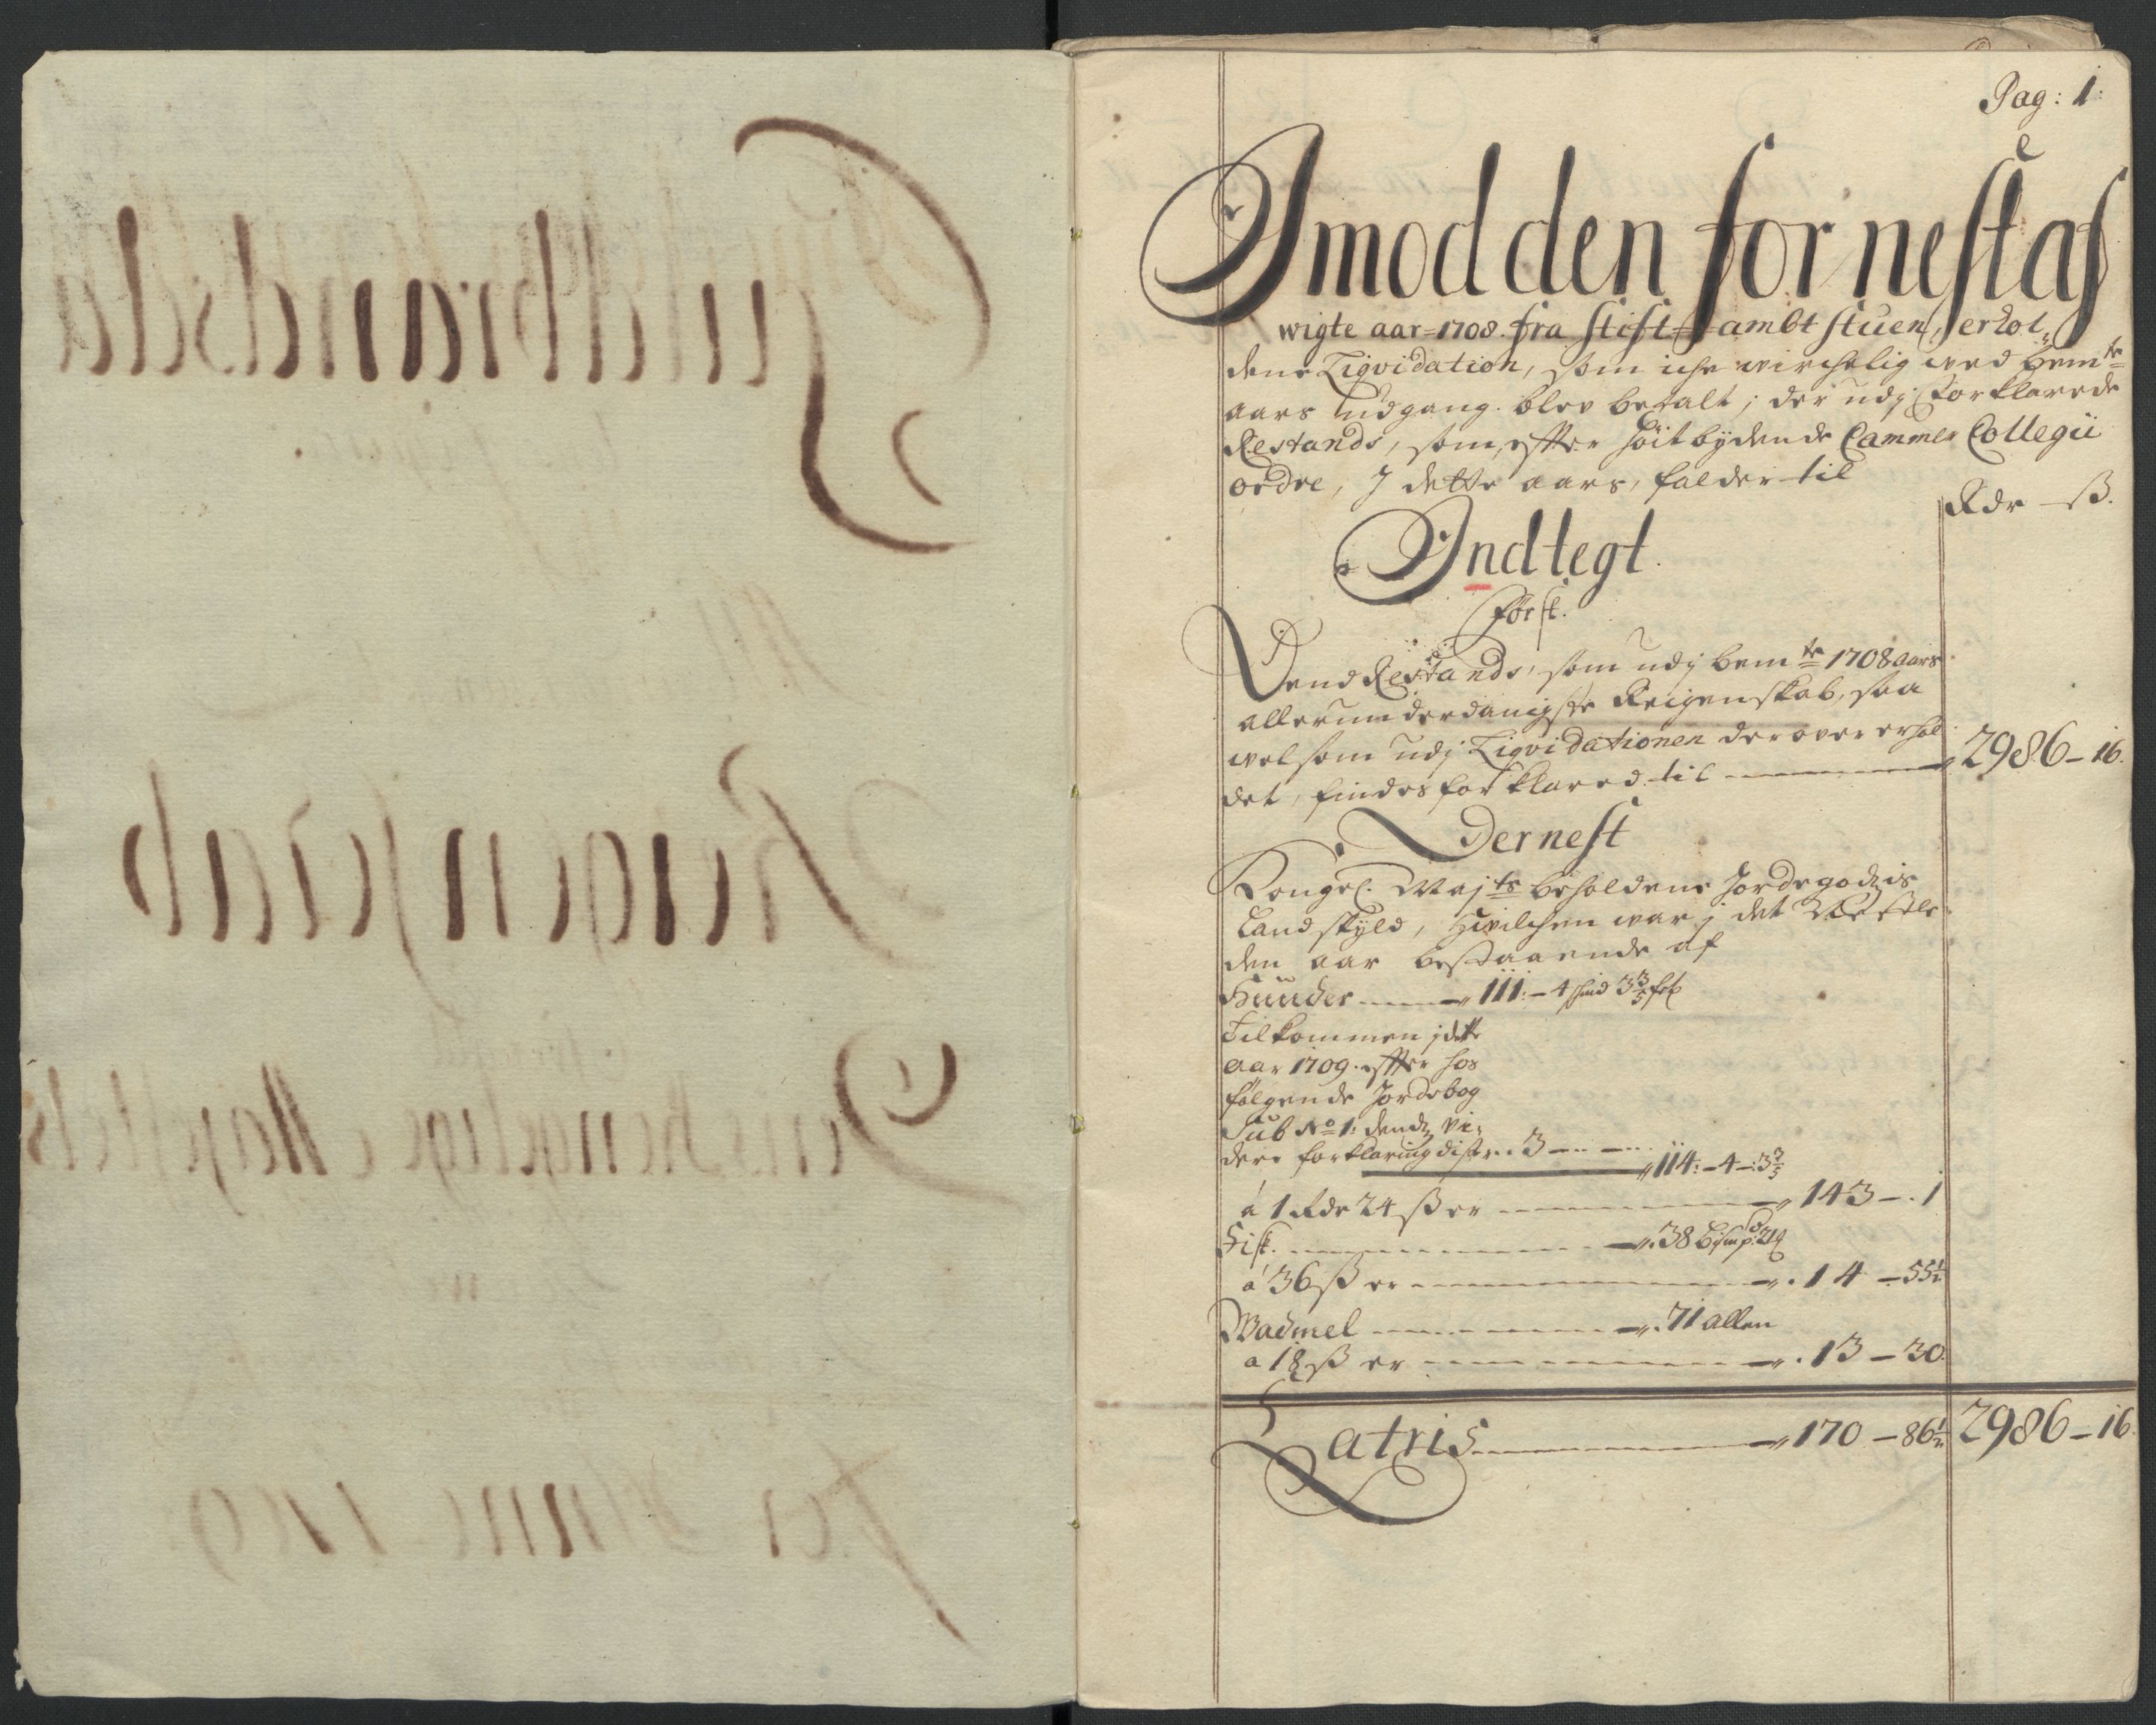 Pag: 1:
Imod den for nest af
wigte aar 1708. fra Stift Ambt stuen, erhol,
dene Liqvidation, som iche wirchelig wed bemte
aars udgang blev betalt; der udj forklarede
Restands, som, efter höitbÿdende Cammer Collegii
ordre, J dette aars, falder til
Rdr ß.
Indtegt.
Först.
Dend Restands, som udj bemte 1708 aars
allerunderdanigste Reigenskab, saa
vel som udj Liqvidationen derover erhol
det, findes forklared til 2986 - 16.
Dernest
Kongel. Majts beholdene Jordegodzis
Landskÿld, Hvilchen war j det
den aar bestaaende af
Huuder 111: - 4 hud 3 3/5
Tilkommen j dette
aar 1709. efter hos
fölgende Jordebog
Sub No 1: dend vi:
dere forklaring 3
114: - 4 - 3 3/5
á 1 Rdr 24 ß er 143 - 1
Fisk. 38
á 36 ß er 14 - 55 1/2
Wadmel 71 allen
a 18 ß er 13 - 30.
Latris 170 - 86 1/2 2986 - 16.